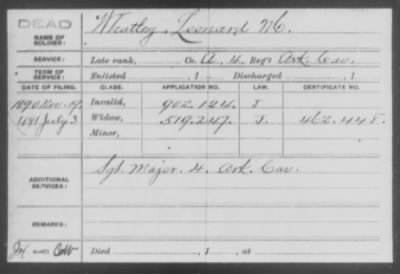 DEAD
NAME OF SOLDIER: Wheatley, Leonard M.
SERVICE: Late rank, Co. A, 4, Reg't Ark Cav.
TERM OF SERVICE: Enlisted , 1 Discharged , 1
DATE OF FILING. CLASS. APPLICATION NO. LAW. CERTIFICATE NO.
1890 Nov. 19. Invalid, 902.124. J
1891 July 3 Widow, 519.247. J. 462.448.
Minor,
ADDITIONAL SERVICES: Sgt. Major. 4. Ark. Cav.
REMARKS:
Died , 1 , at